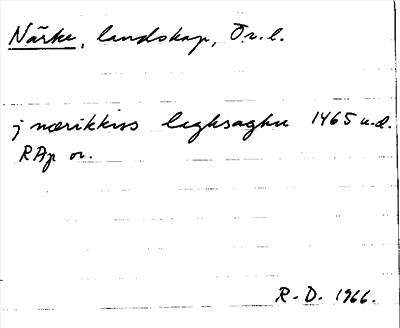 Närke, landskap, Ör.l.
j nærikkiss laghsaghu 1465 u.d.
RAp or.
R-D. 1966.